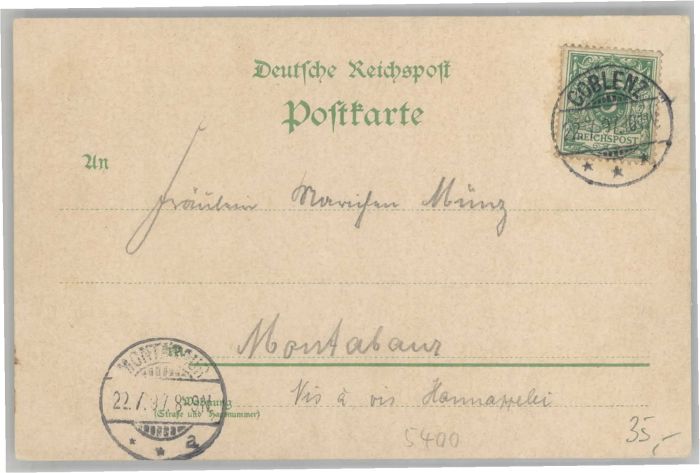 Deutsche Reichspost
Postkarte
COBLENZ
REICHSPOST
An
Fräulein Mariechen Münz
in
Montabaur
MONTABAUR
22.7.97.8-9N.
a
Wohnung
(Straße und Hausnummer)
Vis à vis
5400
35,-